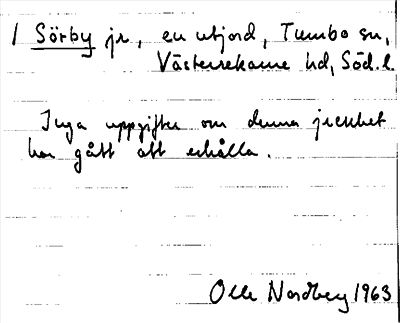 / Sörby jr, en utjord, Tumbo sn,
Västerrekarne hd, Söd. l.
Inga uppgifter om denna jordenhet
har gått att erhålla.
Olle Nordberg 1963